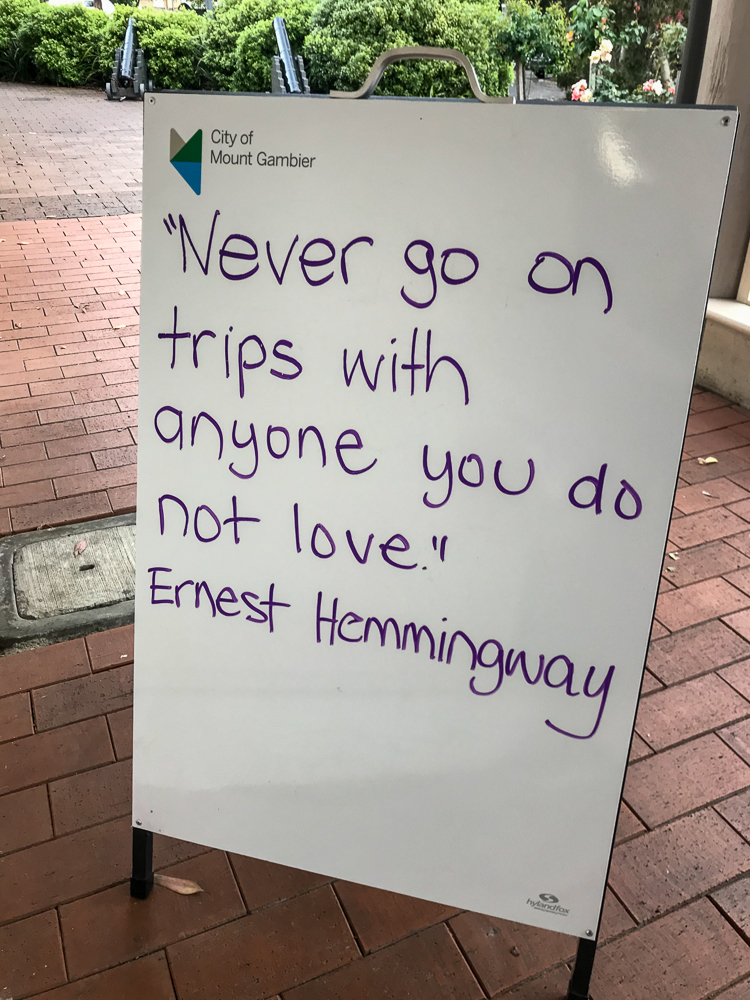 City of
Mount Gambier
"Never go on
trips with
anyone you do
not love."
Ernest Hemmingway
hylandfox